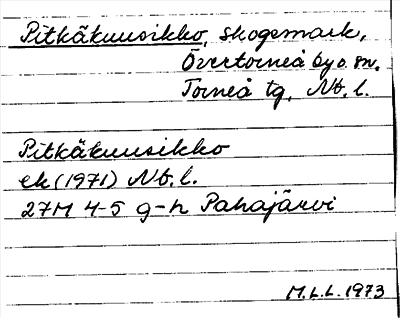 Pitkäkuusikko, skogsmark,
Övertorneå by o. sn.
Torneå tg, Nb. l.
Pitkäkuusikko
ek (1971) Nb. l.
27M 4-5 g-h Pahajärvi
M.L.L. 1973